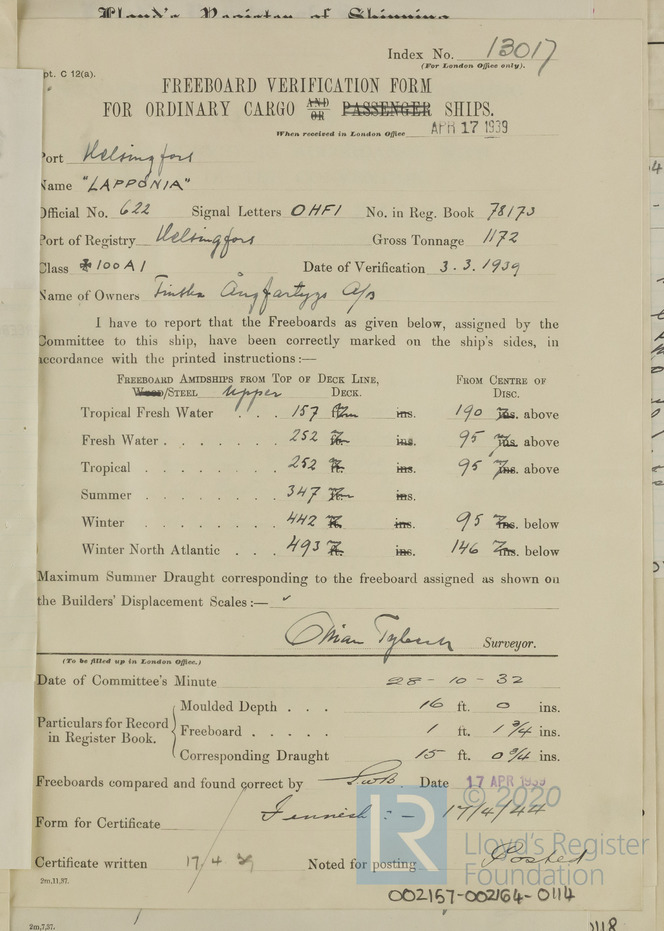 Lloyd's Register of Shipping
Index No. 13017
(For London Office only).
pt. C 12(a).
FREEBOARD VERIFICATION FORM
FOR ORDINARY CARGO AND OR PASSENGER SHIPS.
When received in London Office APR 17 1939
Port Helsingfors
Name "LAPPONIA"
Official No. 622 Signal Letters OHFI No. in Reg. Book 78173
Port of Registry Helsingfors Gross Tonnage 1172
Class ✠100A1 Date of Verification 3.3.1939
Name of Owners Finska Ångfartygs A/B
I have to report that the Freeboards as given below, assigned by the
Committee to this ship, have been correctly marked on the ship's sides, in
accordance with the printed instructions:—
FREEBOARD AMIDSHIPS FROM TOP OF DECK LINE, FROM CENTRE OF
WOOD/STEEL Upper DECK. DISC.
Tropical Fresh Water . . . 157 ins. 190 ins. above
Fresh Water . . . . . . . 252 ft. ins. 95 ins. above
Tropical . . . . . . . . 252 ft. ins. 95 ins. above
Summer . . . . . . . . 347 ins.
Winter . . . . . . . . 442 ft. ins. 95 ins. below
Winter North Atlantic . . . 493 ft. ins. 146 ins. below
Maximum Summer Draught corresponding to the freeboard assigned as shown on
the Builders' Displacement Scales:— ✓
Surveyor.
(To be filled up in London Office.)
Date of Committee's Minute 28-10-32
Particulars for Record in Register Book.
Moulded Depth . . . 16 ft. 0 ins.
Freeboard . . . . . 1 ft. 1 3/4 ins.
Corresponding Draught 15 ft. 0 3/4 ins.
Freeboards compared and found correct by Date 17 APR 1939
Form for Certificate Finnish :- 17/4/44
Certificate written 17/4 39 Noted for posting Posted
2m,11,37.
© 2020
LR
Lloyd's Register
Foundation
002157-002164-0114
2m,7,37.